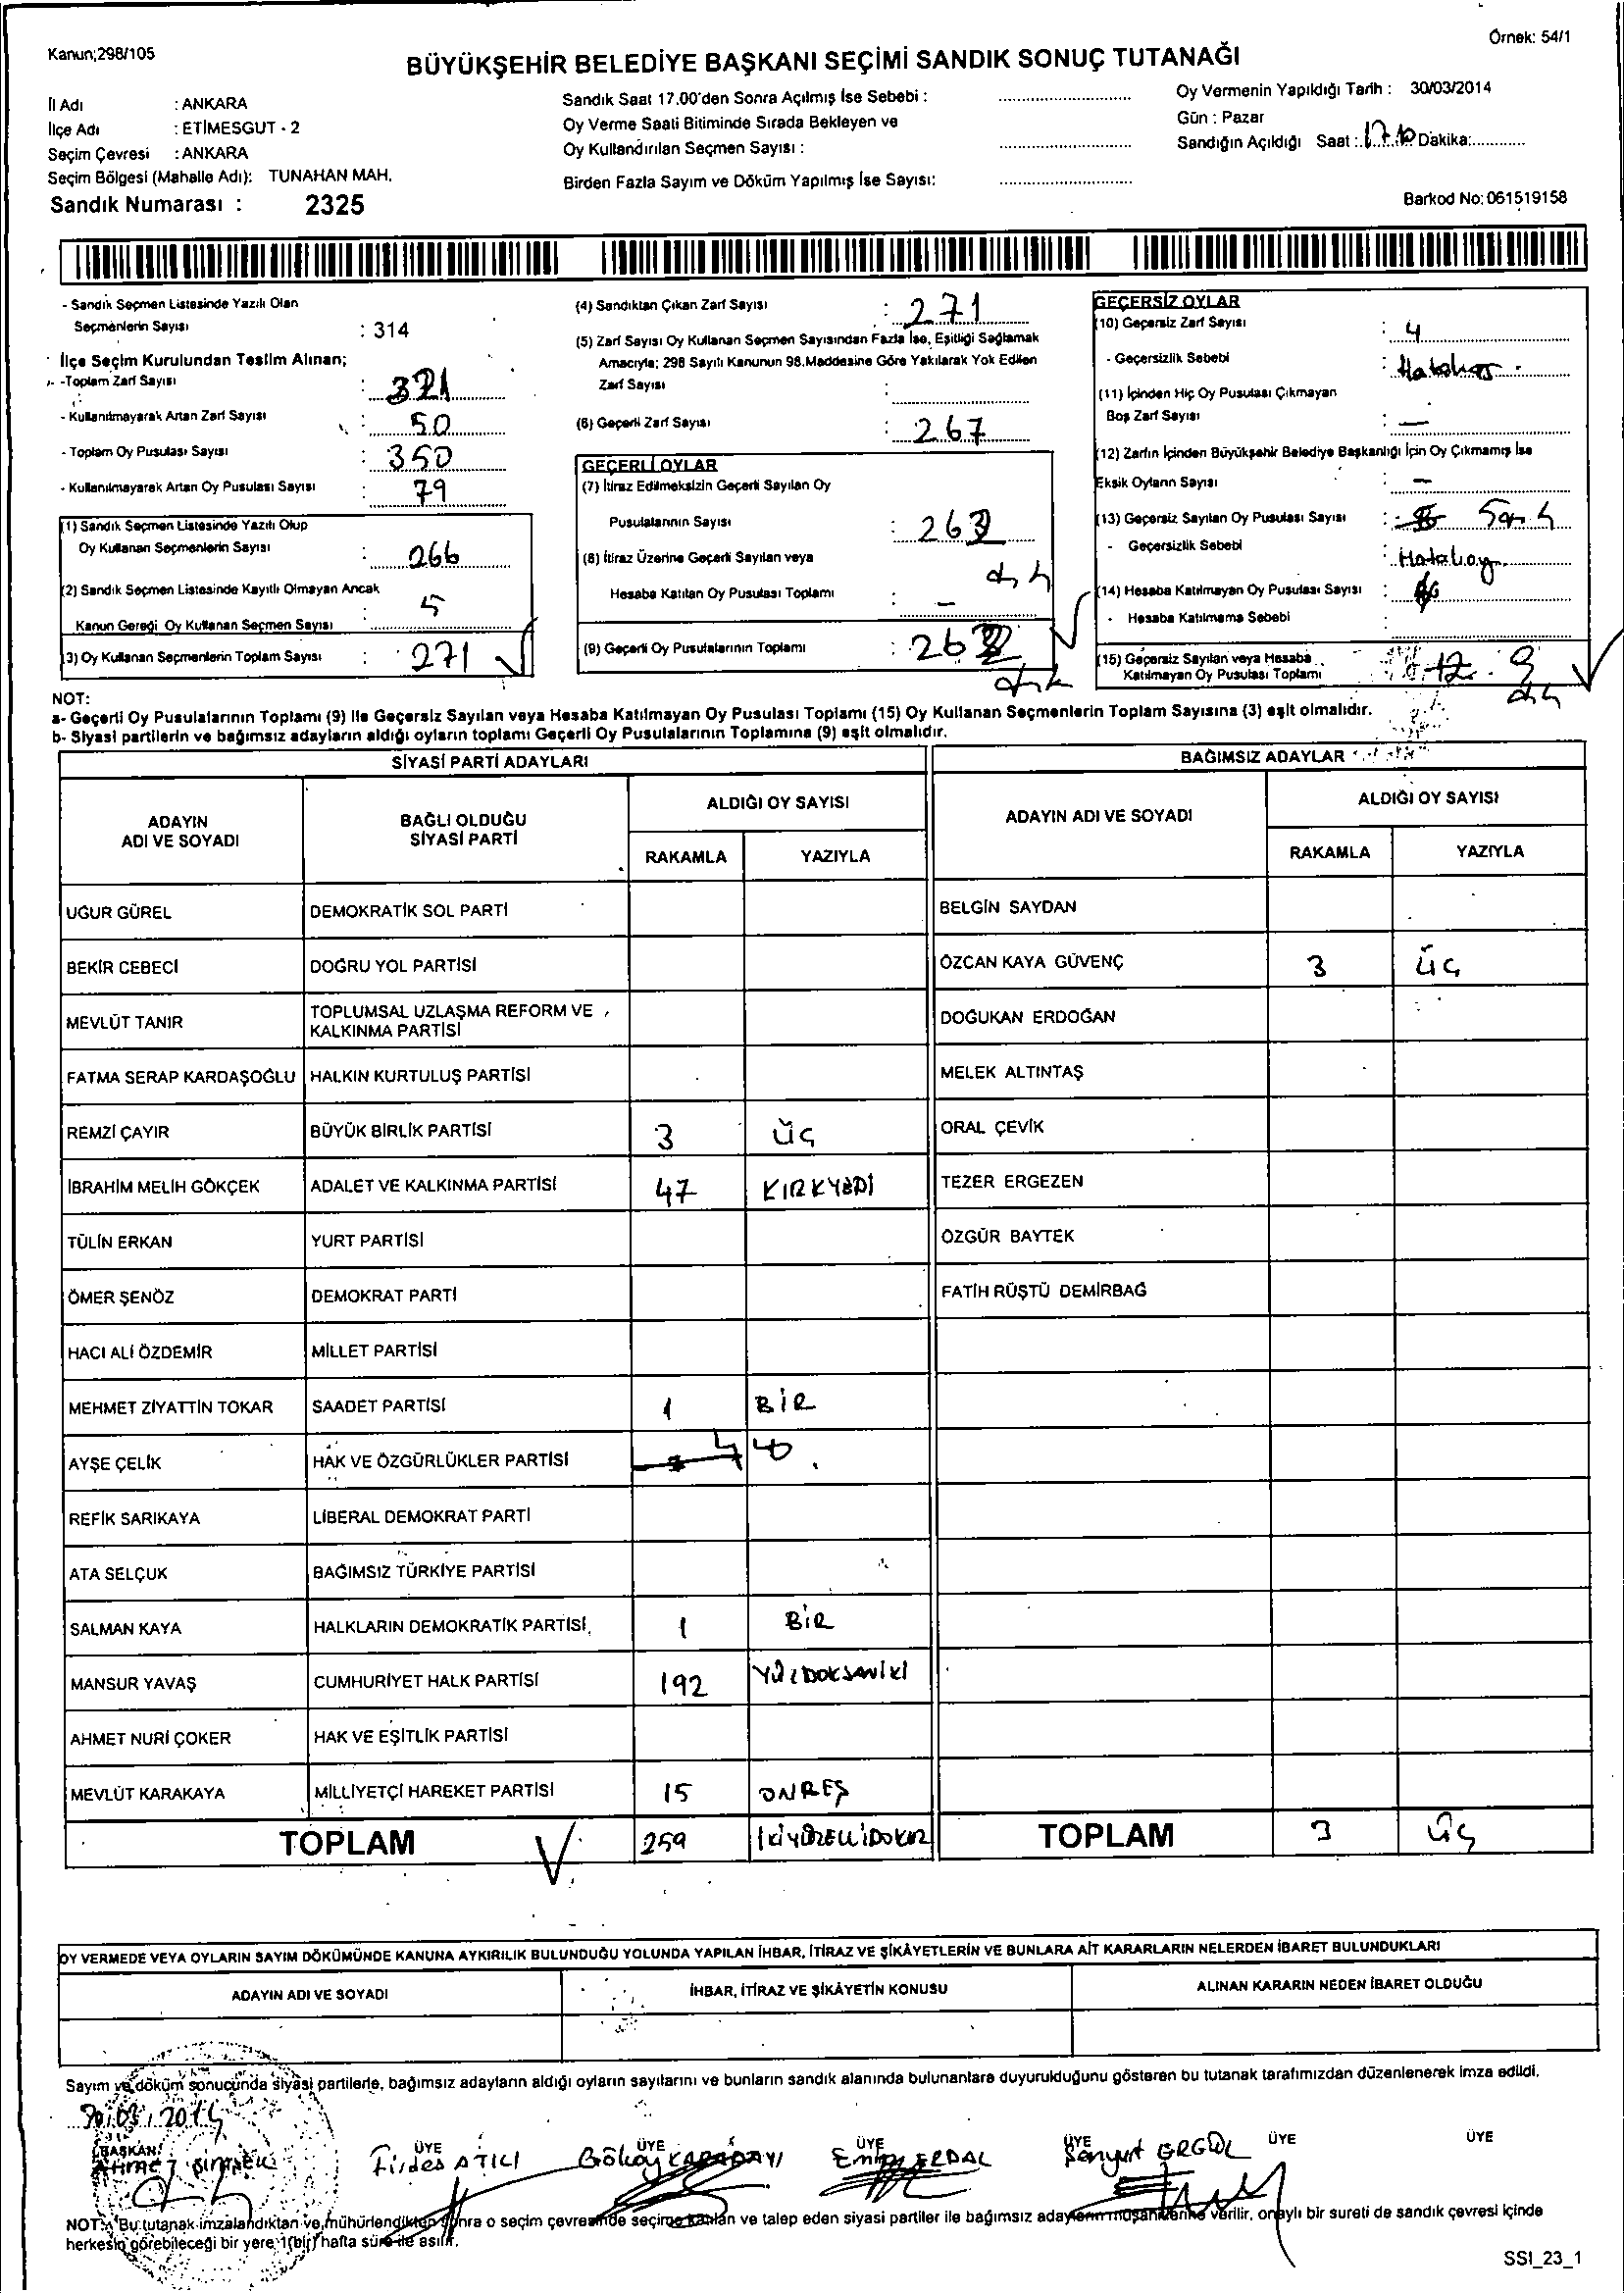 Kanun;298/105
Örnek: 54/1
BÜYÜKŞEHİR BELEDİYE BAŞKANI SEÇİMİ SANDIK SONUÇ TUTANAĞI
İl Adı : ANKARA
İlçe Adı : ETİMESGUT - 2
Seçim Çevresi : ANKARA
Seçim Bölgesi (Mahalle Adı): TUNAHAN MAH.
Sandık Numarası : 2325
Sandık Saat 17.00'den Sonra Açılmış İse Sebebi :
Oy Verme Saati Bitiminde Sırada Bekleyen ve
Oy Kullandırılan Seçmen Sayısı :
Birden Fazla Sayım ve Döküm Yapılmış İse Sayısı:
Oy Vermenin Yapıldığı Tarih : 30/03/2014
Gün : Pazar
Sandığın Açıldığı Saat : 17.10 Dakika:
Barkod No: 061519158
- Sandık Seçmen Listesinde Yazılı Olan
Seçmenlerin Sayısı : 314
İlçe Seçim Kurulundan Teslim Alınan;
-Toplam Zarf Sayısı : 321
- Kullanılmayarak Artan Zarf Sayısı : 50
- Toplam Oy Pusulası Sayısı : 350
- Kullanılmayarak Artan Oy Pusulası Sayısı : 79
(1) Sandık Seçmen Listesinde Yazılı Olup
Oy Kullanan Seçmenlerin Sayısı : 266
(2) Sandık Seçmen Listesinde Kayıtlı Olmayan Ancak
Kanun Gereği Oy Kullanan Seçmen Sayısı : 5
(3) Oy Kullanan Seçmenlerin Toplam Sayısı : 271
(4) Sandıktan Çıkan Zarf Sayısı : 271
(5) Zarf Sayısı Oy Kullanan Seçmen Sayısından Fazla İse, Eşitliği Sağlamak
Amacıyla; 298 Sayılı Kanunun 98.Maddesine Göre Yakılarak Yok Edilen
Zarf Sayısı :
(6) Geçerli Zarf Sayısı : 267
GEÇERLİ OYLAR
(7) İtiraz Edilmeksizin Geçerli Sayılan Oy
Pusulalarının Sayısı : 262
(8) İtiraz Üzerine Geçerli Sayılan veya
Hesaba Katılan Oy Pusulası Toplamı : –
(9) Geçerli Oy Pusulalarının Toplamı : 262
GEÇERSİZ OYLAR
(10) Geçersiz Zarf Sayısı : 4
- Geçersizlik Sebebi :
(11) İçinden Hiç Oy Pusulası Çıkmayan
Boş Zarf Sayısı : –
(12) Zarfın İçinden Büyükşehir Belediye Başkanlığı İçin Oy Çıkmamış İse
Eksik Oyların Sayısı : –
(13) Geçersiz Sayılan Oy Pusulası Sayısı :
- Geçersizlik Sebebi :
(14) Hesaba Katılmayan Oy Pusulası Sayısı :
- Hesaba Katılmama Sebebi :
(15) Geçersiz Sayılan veya Hesaba
Katılmayan Oy Pusulası Toplamı : 12 9
NOT:
a- Geçerli Oy Pusulalarının Toplamı (9) ile Geçersiz Sayılan veya Hesaba Katılmayan Oy Pusulası Toplamı (15) Oy Kullanan Seçmenlerin Toplam Sayısına (3) eşit olmalıdır.
b- Siyasi partilerin ve bağımsız adayların aldığı oyların toplamı Geçerli Oy Pusulalarının Toplamına (9) eşit olmalıdır.
SİYASİ PARTİ ADAYLARI
ADAYIN ADI VE SOYADI
BAĞLI OLDUĞU SİYASİ PARTİ
ALDIĞI OY SAYISI
RAKAMLA YAZIYLA
UĞUR GÜREL DEMOKRATİK SOL PARTİ
BEKİR CEBECİ DOĞRU YOL PARTİSİ
MEVLÜT TANIR TOPLUMSAL UZLAŞMA REFORM VE
KALKINMA PARTİSİ
FATMA SERAP KARDAŞOĞLU HALKIN KURTULUŞ PARTİSİ
REMZİ ÇAYIR BÜYÜK BİRLİK PARTİSİ 3 ÜÇ
İBRAHİM MELİH GÖKÇEK ADALET VE KALKINMA PARTİSİ 47 KIRKYEDİ
TÜLİN ERKAN YURT PARTİSİ
ÖMER ŞENÖZ DEMOKRAT PARTİ
HACI ALİ ÖZDEMİR MİLLET PARTİSİ
MEHMET ZİYATTİN TOKAR SAADET PARTİSİ 1 BİR
AYŞE ÇELİK HAK VE ÖZGÜRLÜKLER PARTİSİ
REFİK SARIKAYA LİBERAL DEMOKRAT PARTİ
ATA SELÇUK BAĞIMSIZ TÜRKİYE PARTİSİ
SALMAN KAYA HALKLARIN DEMOKRATİK PARTİSİ 1 BİR
MANSUR YAVAŞ CUMHURİYET HALK PARTİSİ 192 YÜZDOKSANİKİ
AHMET NURİ ÇOKER HAK VE EŞİTLİK PARTİSİ
MEVLÜT KARAKAYA MİLLİYETÇİ HAREKET PARTİSİ 15 ONBEŞ
TOPLAM 259 İKİYÜZELLİDOKUZ
BAĞIMSIZ ADAYLAR
ADAYIN ADI VE SOYADI
ALDIĞI OY SAYISI
RAKAMLA YAZIYLA
BELGİN SAYDAN
ÖZCAN KAYA GÜVENÇ 3 ÜÇ
DOĞUKAN ERDOĞAN
MELEK ALTINTAŞ
ORAL ÇEVİK
TEZER ERGEZEN
ÖZGÜR BAYTEK
FATİH RÜŞTÜ DEMİRBAĞ
TOPLAM 3 ÜÇ
OY VERMEDE VEYA OYLARIN SAYIM DÖKÜMÜNDE KANUNA AYKIRILIK BULUNDUĞU YOLUNDA YAPILAN İHBAR, İTİRAZ VE ŞİKÂYETLERİN VE BUNLARA AİT KARARLARIN NELERDEN İBARET BULUNDUKLARI
ADAYIN ADI VE SOYADI İHBAR, İTİRAZ VE ŞİKÂYETİN KONUSU ALINAN KARARIN NEDEN İBARET OLDUĞU
Sayım ve döküm sonucunda siyasi partilerle, bağımsız adayların aldığı oyların sayılarını ve bunların sandık alanında bulunanlara duyurulduğunu gösteren bu tutanak tarafımızdan düzenlenerek imza edildi.
30/03/2014
BAŞKAN ÜYE ÜYE ÜYE ÜYE ÜYE ÜYE
AHMET ŞİMŞEK Firdes ATICI Gökay KARADAYI ERDAL ERGÜL
NOT: Bu tutanak imzalandıktan ve mühürlendikten sonra o seçim çevresinde seçime katılan ve talep eden siyasi partiler ile bağımsız adayların müşahitlerine verilir, onaylı bir sureti de sandık çevresi içinde
herkesin görebileceği bir yere 1(bir) hafta süre ile asılır.
SSI_23_1